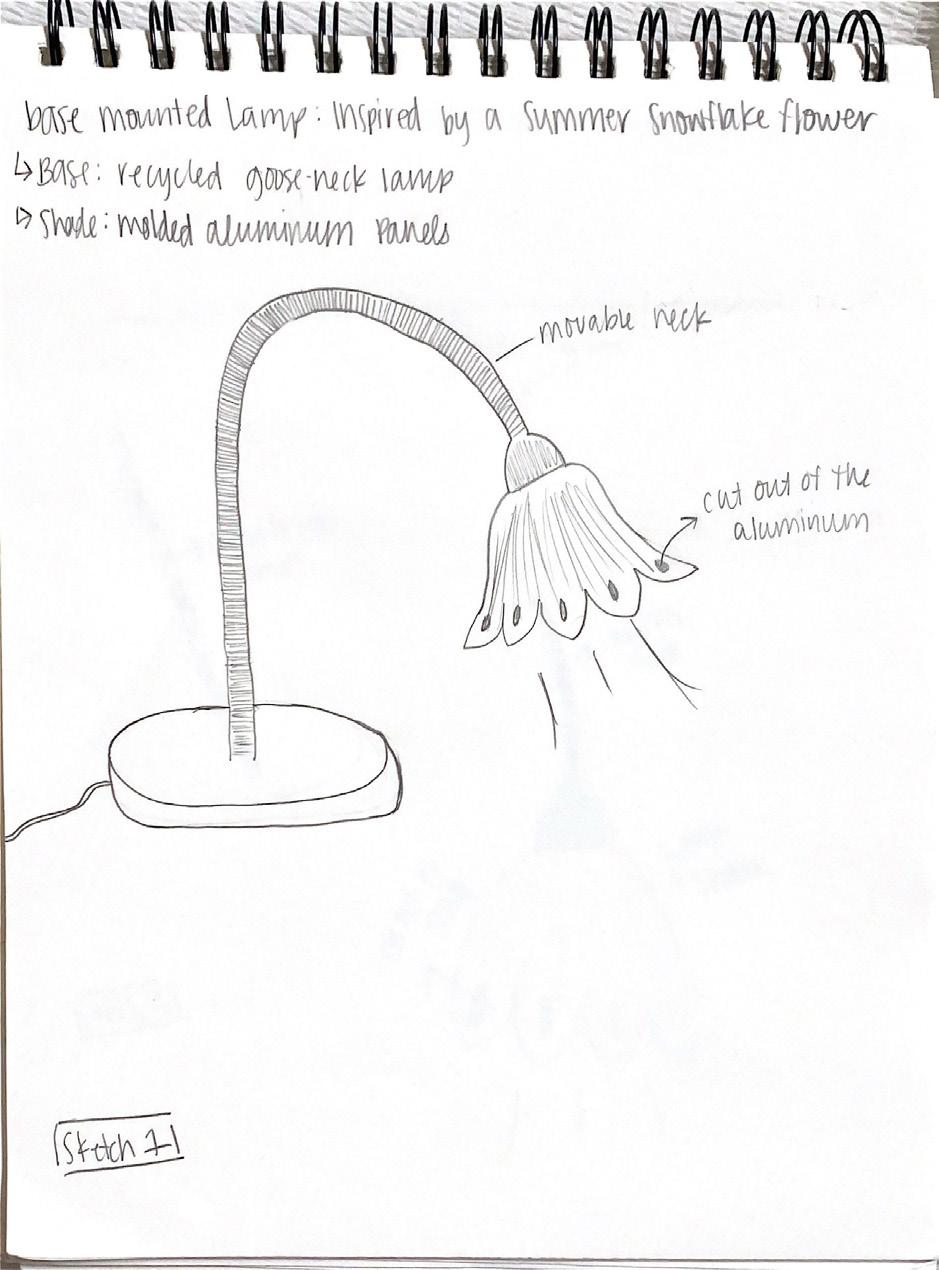 base mounted Lamp: Inspired by a summer snowflake flower
↳ Base: recycled goose-neck lamp
↳ Shade: molded aluminum panels
movable neck
cut out of the
aluminum
Sketch 1